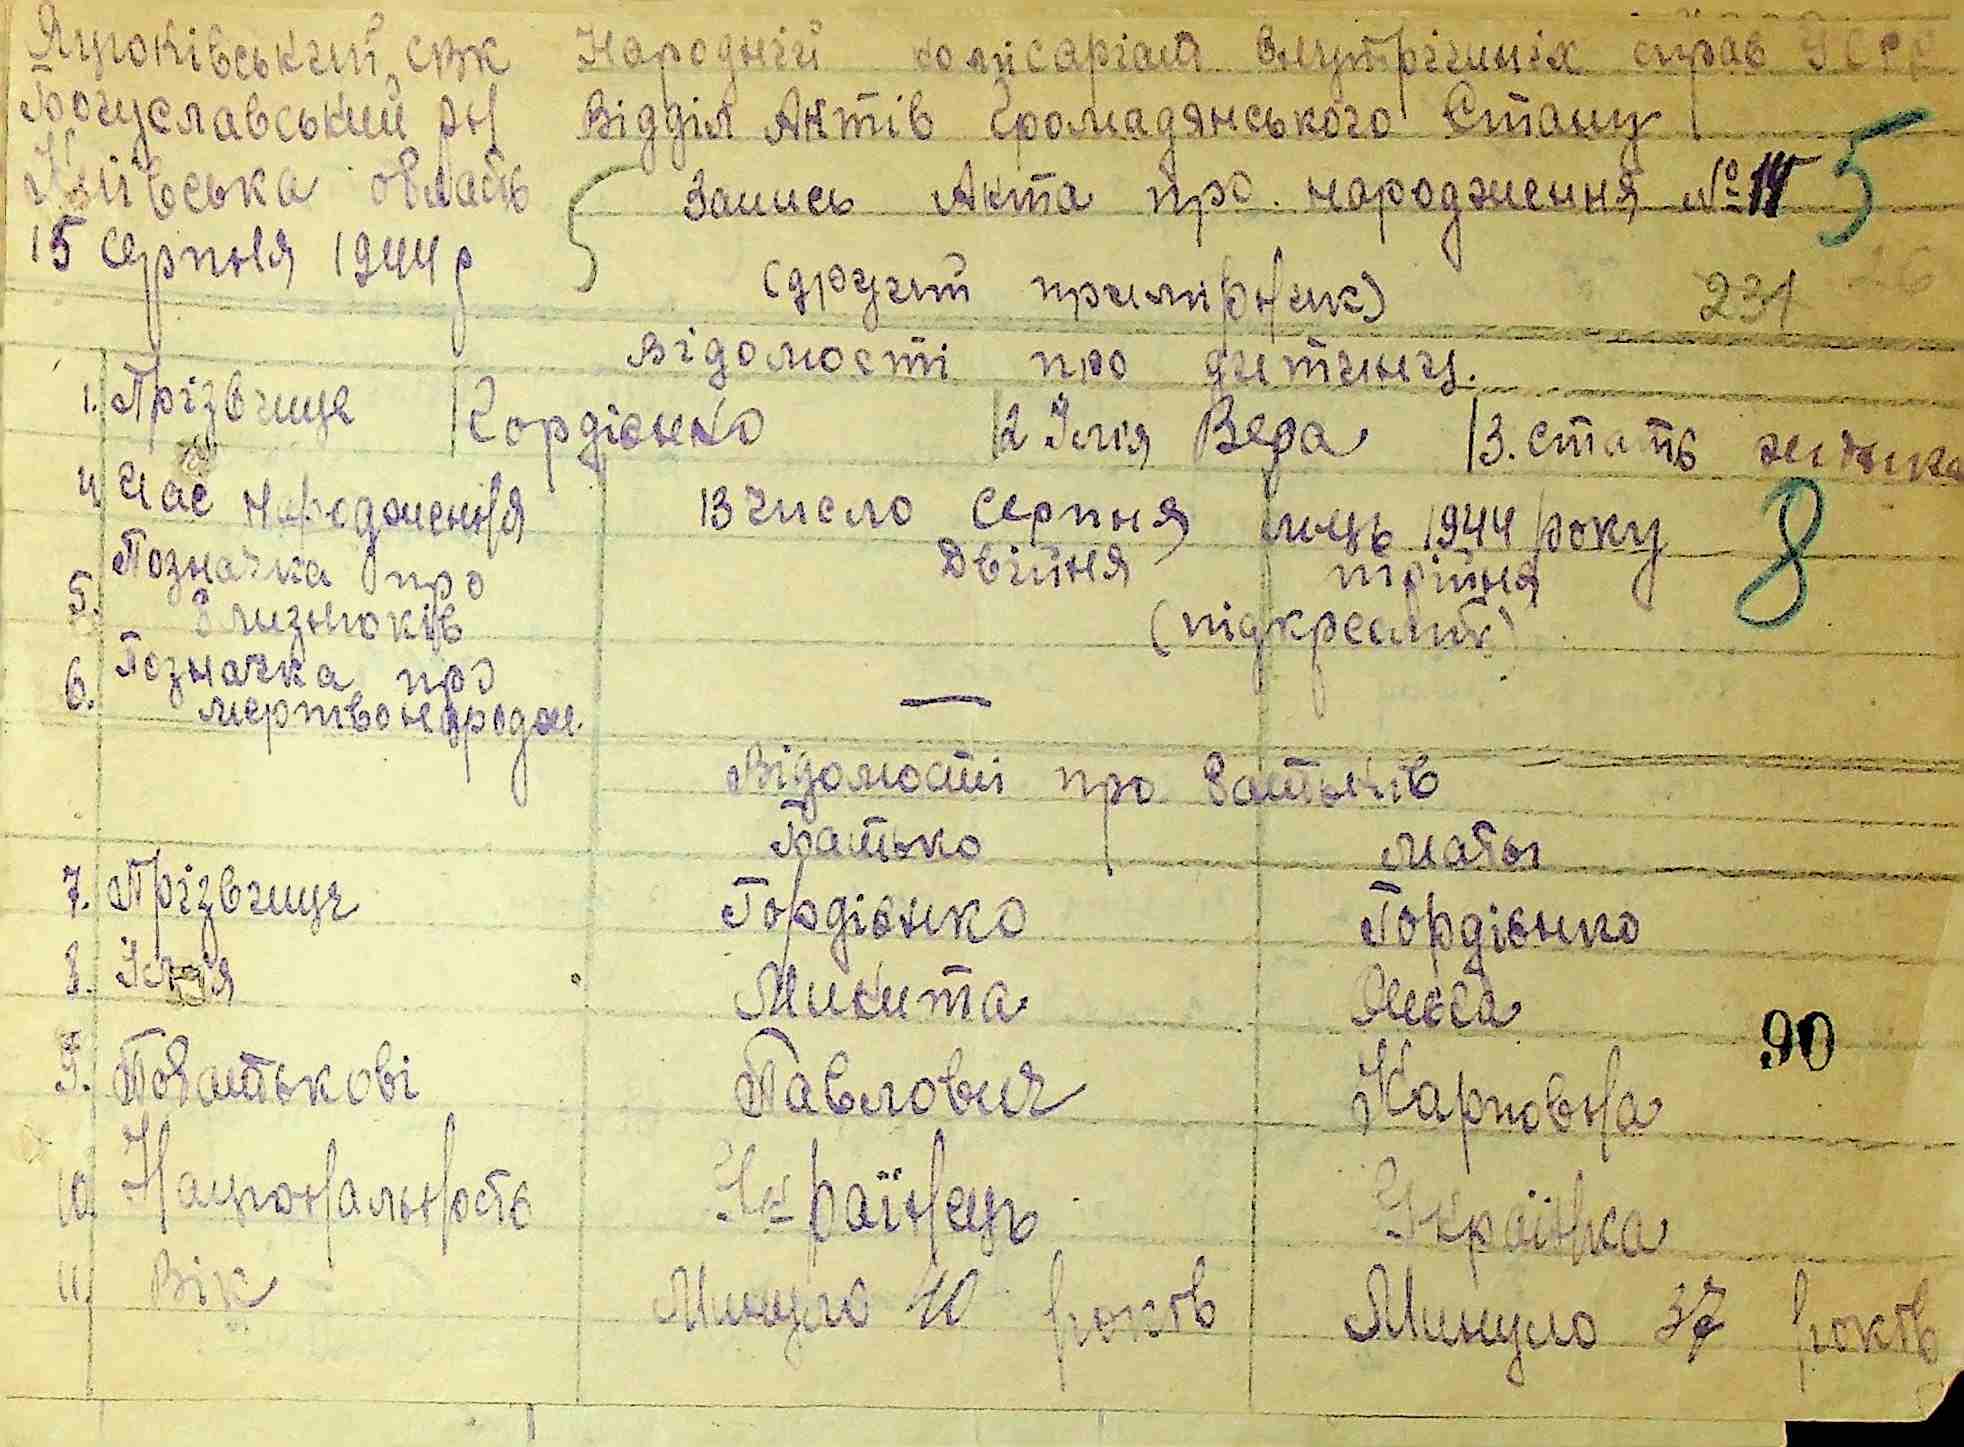 Яцюківський Народній комісаріат внутрішніх справ УСРР
Богуславський рн Відділ Актів Громадянського Стану
Київська область Запись Акта про народження № 5
15 серпня 1944 р (другий примірник) 231
Відомості про дитину.
1. Прізвище Гордієнко 2 Імія Вера 3. стать жінька
4 Час народження 13 число серпня місць 1944 року 8
5. Позначка про близнюків Двійня трійня
(підкреслить)
6. Позначка про мертвонародж. —
Відомості про батьків
Батько мать
7. Прізвище Гордієнко Гордієнко
8. Імія Микита
90
9. Побатькові Павлович Карповна
10. Національность Українець Українка
11. Вік Минуло 40 років Минуло 37 років